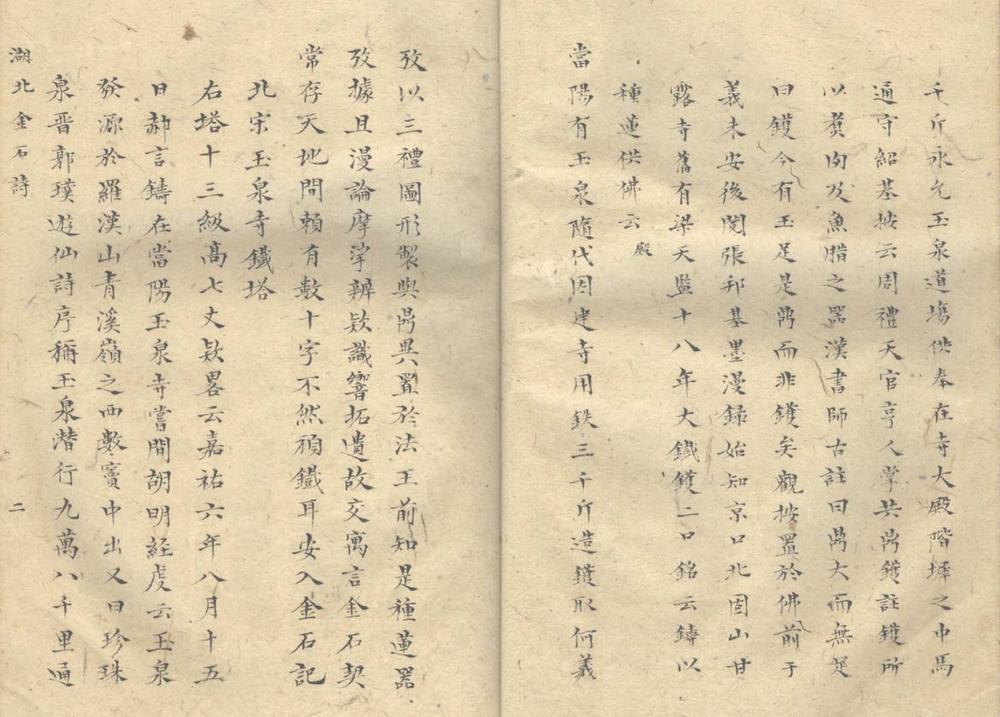 千斤永充玉泉道塲供奉在寺大殿階墀之中馬
通守紹基按云周禮天官亨人掌共鼎鑊註鑊所
以煑肉及魚腊之器漢書師古註曰鼎大而無足
曰鑊今有玉足是鼎而非鑊矣觀挍置於佛前于
義未安後閱張邦基墨漫録始知京口北固山甘
露寺舊有梁天監十八年大鐵鑊二口銘云鑄以
種蓮供佛云殿
當陽有玉泉隨代因建寺用鉄三千斤造鑊取何義
攷以三禮圖形製與鼎異置於法王前知是種蓮器
攷據且漫論摩挲辨欵識響拓遺故交寓言金石契
常存天地間頼有數十字不然頑鐵耳安入金石記
北宋玉泉寺鐵塔
右塔十三級高七丈欵畧云嘉祐六年八月十五
日郝言鑄在當陽玉泉寺嘗閱胡明経虔云玉泉
發源於羅漢山青溪嶺之西數竇中出又曰珍珠
泉晋郭璞遊仙詩序稱玉泉潜行九萬八千里通
湖北金石詩 二